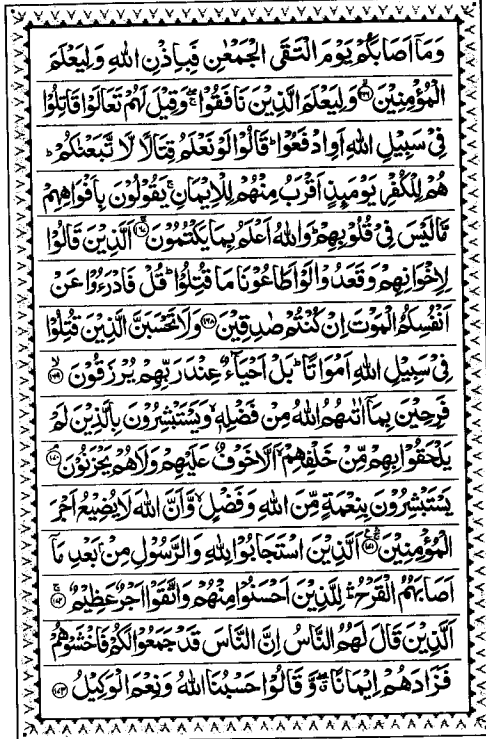 وَمَاۤ اَصَابَكُمْ يَوْمَ الْتَقَى الْجَمْعٰنِ فَبِاِذْنِ اللّٰهِ وَلِيَعْلَمَ
الْمُؤْمِنِيْنَ ۝۱۶۶ وَلِيَعْلَمَ الَّذِيْنَ نَافَقُوْا ۚۖ وَقِيْلَ لَهُمْ تَعَالَوْا قَاتِلُوْا
فِيْ سَبِيْلِ اللّٰهِ اَوِ ادْفَعُوْا ؕ قَالُوْا لَوْ نَعْلَمُ قِتَالًا لَّا تَّبَعْنٰكُمْ ؕ
هُمْ لِلْكُفْرِ يَوْمَىِٕذٍ اَقْرَبُ مِنْهُمْ لِلْاِيْمَانِ ۚ يَقُوْلُوْنَ بِاَفْوَاهِهِمْ
مَّا لَيْسَ فِيْ قُلُوْبِهِمْ ؕ وَاللّٰهُ اَعْلَمُ بِمَا يَكْتُمُوْنَ ۝۱۶۷ اَلَّذِيْنَ قَالُوْا
لِاِخْوَانِهِمْ وَقَعَدُوْا لَوْ اَطَاعُوْنَا مَا قُتِلُوْا ؕ قُلْ فَادْرَءُوْا عَنْ
اَنْفُسِكُمُ الْمَوْتَ اِنْ كُنْتُمْ صٰدِقِيْنَ ۝۱۶۸ وَلَا تَحْسَبَنَّ الَّذِيْنَ قُتِلُوْا
فِيْ سَبِيْلِ اللّٰهِ اَمْوَاتًا ؕ بَلْ اَحْيَآءٌ عِنْدَ رَبِّهِمْ يُرْزَقُوْنَ ۝۱۶۹ۙ
فَرِحِيْنَ بِمَاۤ اٰتٰىهُمُ اللّٰهُ مِنْ فَضْلِهٖ ۙ وَيَسْتَبْشِرُوْنَ بِالَّذِيْنَ لَمْ
يَلْحَقُوْا بِهِمْ مِّنْ خَلْفِهِمْ ۙ اَلَّا خَوْفٌ عَلَيْهِمْ وَلَا هُمْ يَحْزَنُوْنَ ۝۱۷۰ۘ
يَسْتَبْشِرُوْنَ بِنِعْمَةٍ مِّنَ اللّٰهِ وَفَضْلٍ ۙ وَّاَنَّ اللّٰهَ لَا يُضِيْعُ اَجْرَ
الْمُؤْمِنِيْنَ ۝۱۷۱ۚ ع اَلَّذِيْنَ اسْتَجَابُوْا لِلّٰهِ وَالرَّسُوْلِ مِنْۢ بَعْدِ مَاۤ
اَصَابَهُمُ الْقَرْحُ ۛؕ لِلَّذِيْنَ اَحْسَنُوْا مِنْهُمْ وَاتَّقَوْا اَجْرٌ عَظِيْمٌ ۝۱۷۲ۚ
اَلَّذِيْنَ قَالَ لَهُمُ النَّاسُ اِنَّ النَّاسَ قَدْ جَمَعُوْا لَكُمْ فَاخْشَوْهُمْ
فَزَادَهُمْ اِيْمَانًا ۖۗ وَّقَالُوْا حَسْبُنَا اللّٰهُ وَنِعْمَ الْوَكِيْلُ ۝۱۷۳